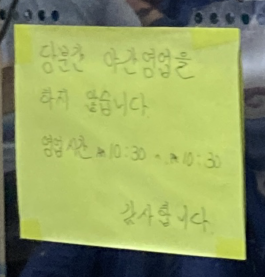 당분간 야간영업을
하지 않습니다
영업시간 10:30 ~ 10:30
감사합니다